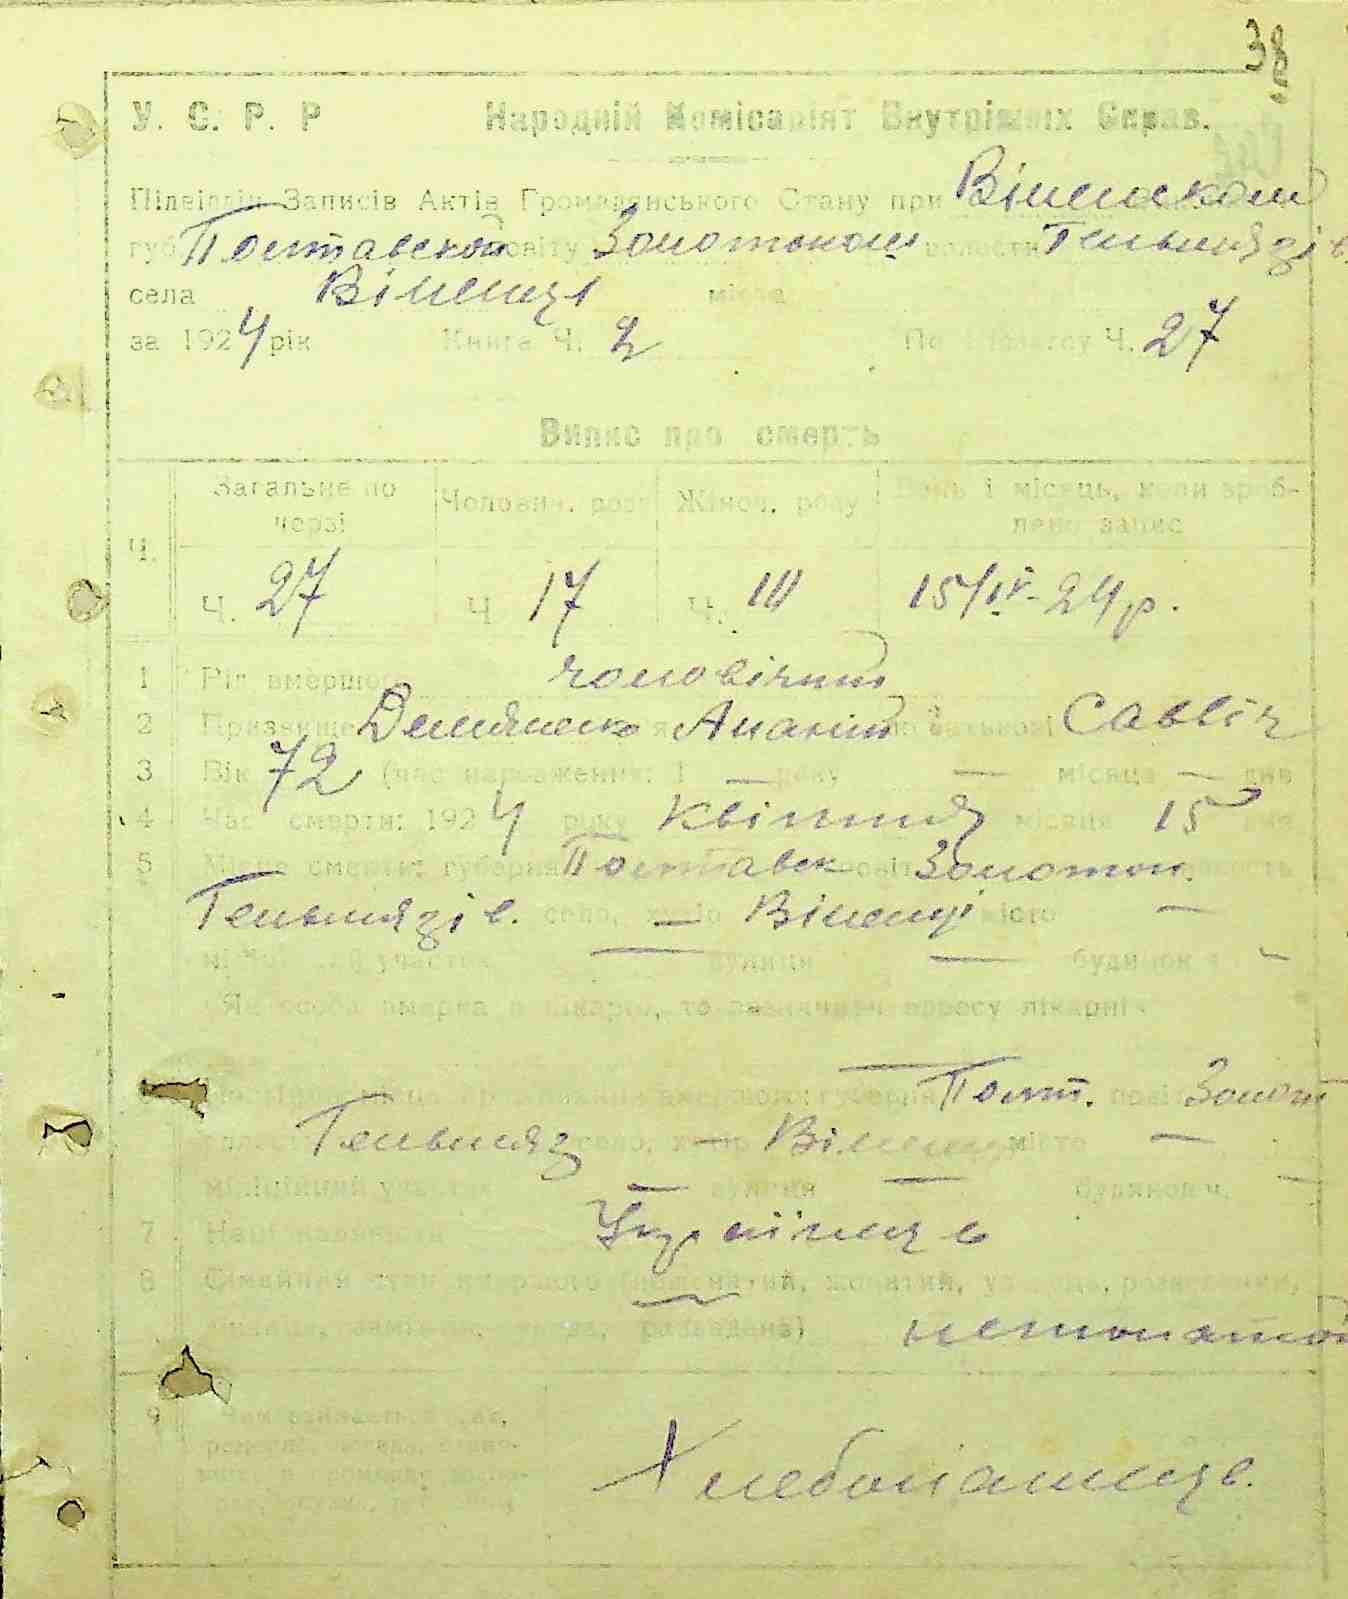 38
У. С. Р. Р Народній Комісаріят Внутрішніх Справ.
Підвідділ Записів Актів Громадянського Стану при Віненском
губ Полтавской повіту Золотоном волости Гельмязів
села Віненці місто
за 1924 рік Книга Ч. 2 По Ч. 27
Випис про смерть
Ч. Загальне по черзі Чоловіч. роду Жіноч. роду День і місяць, коли зроблено запис
Ч. 27 Ч 17 Ч. 10 15/IV-24 р.
1 Рід вмершого чоловічий
2 Призвище Демяненко Ананій по батькові Саввіч
3 Вік 72 (час народження: 1 — року — місяця — дня
4 Час смерти: 1924 року Квітня місяця 15 дня
5 Місце смерти: губерня Полтавск повіт Золотон. волость
Гельмязів. село, хутір — Віненці місто —
міліційний участок — вулиця — будинок —
Як особа вмерла в лікарні, то зазначити адресу лікарні
вмершого: губерня Полт. повіт Золот
Гельмяз село, хутір — Віненці місто —
міліційний участок — вулиця — будинок ч. —
7 Національність Українець
8 Сімейний стан вмершого (нежонатий, жонатий, удовець, розведений,
замужня, удова, розведена) нежонатой
9 Чим займається
Хлебопашець.